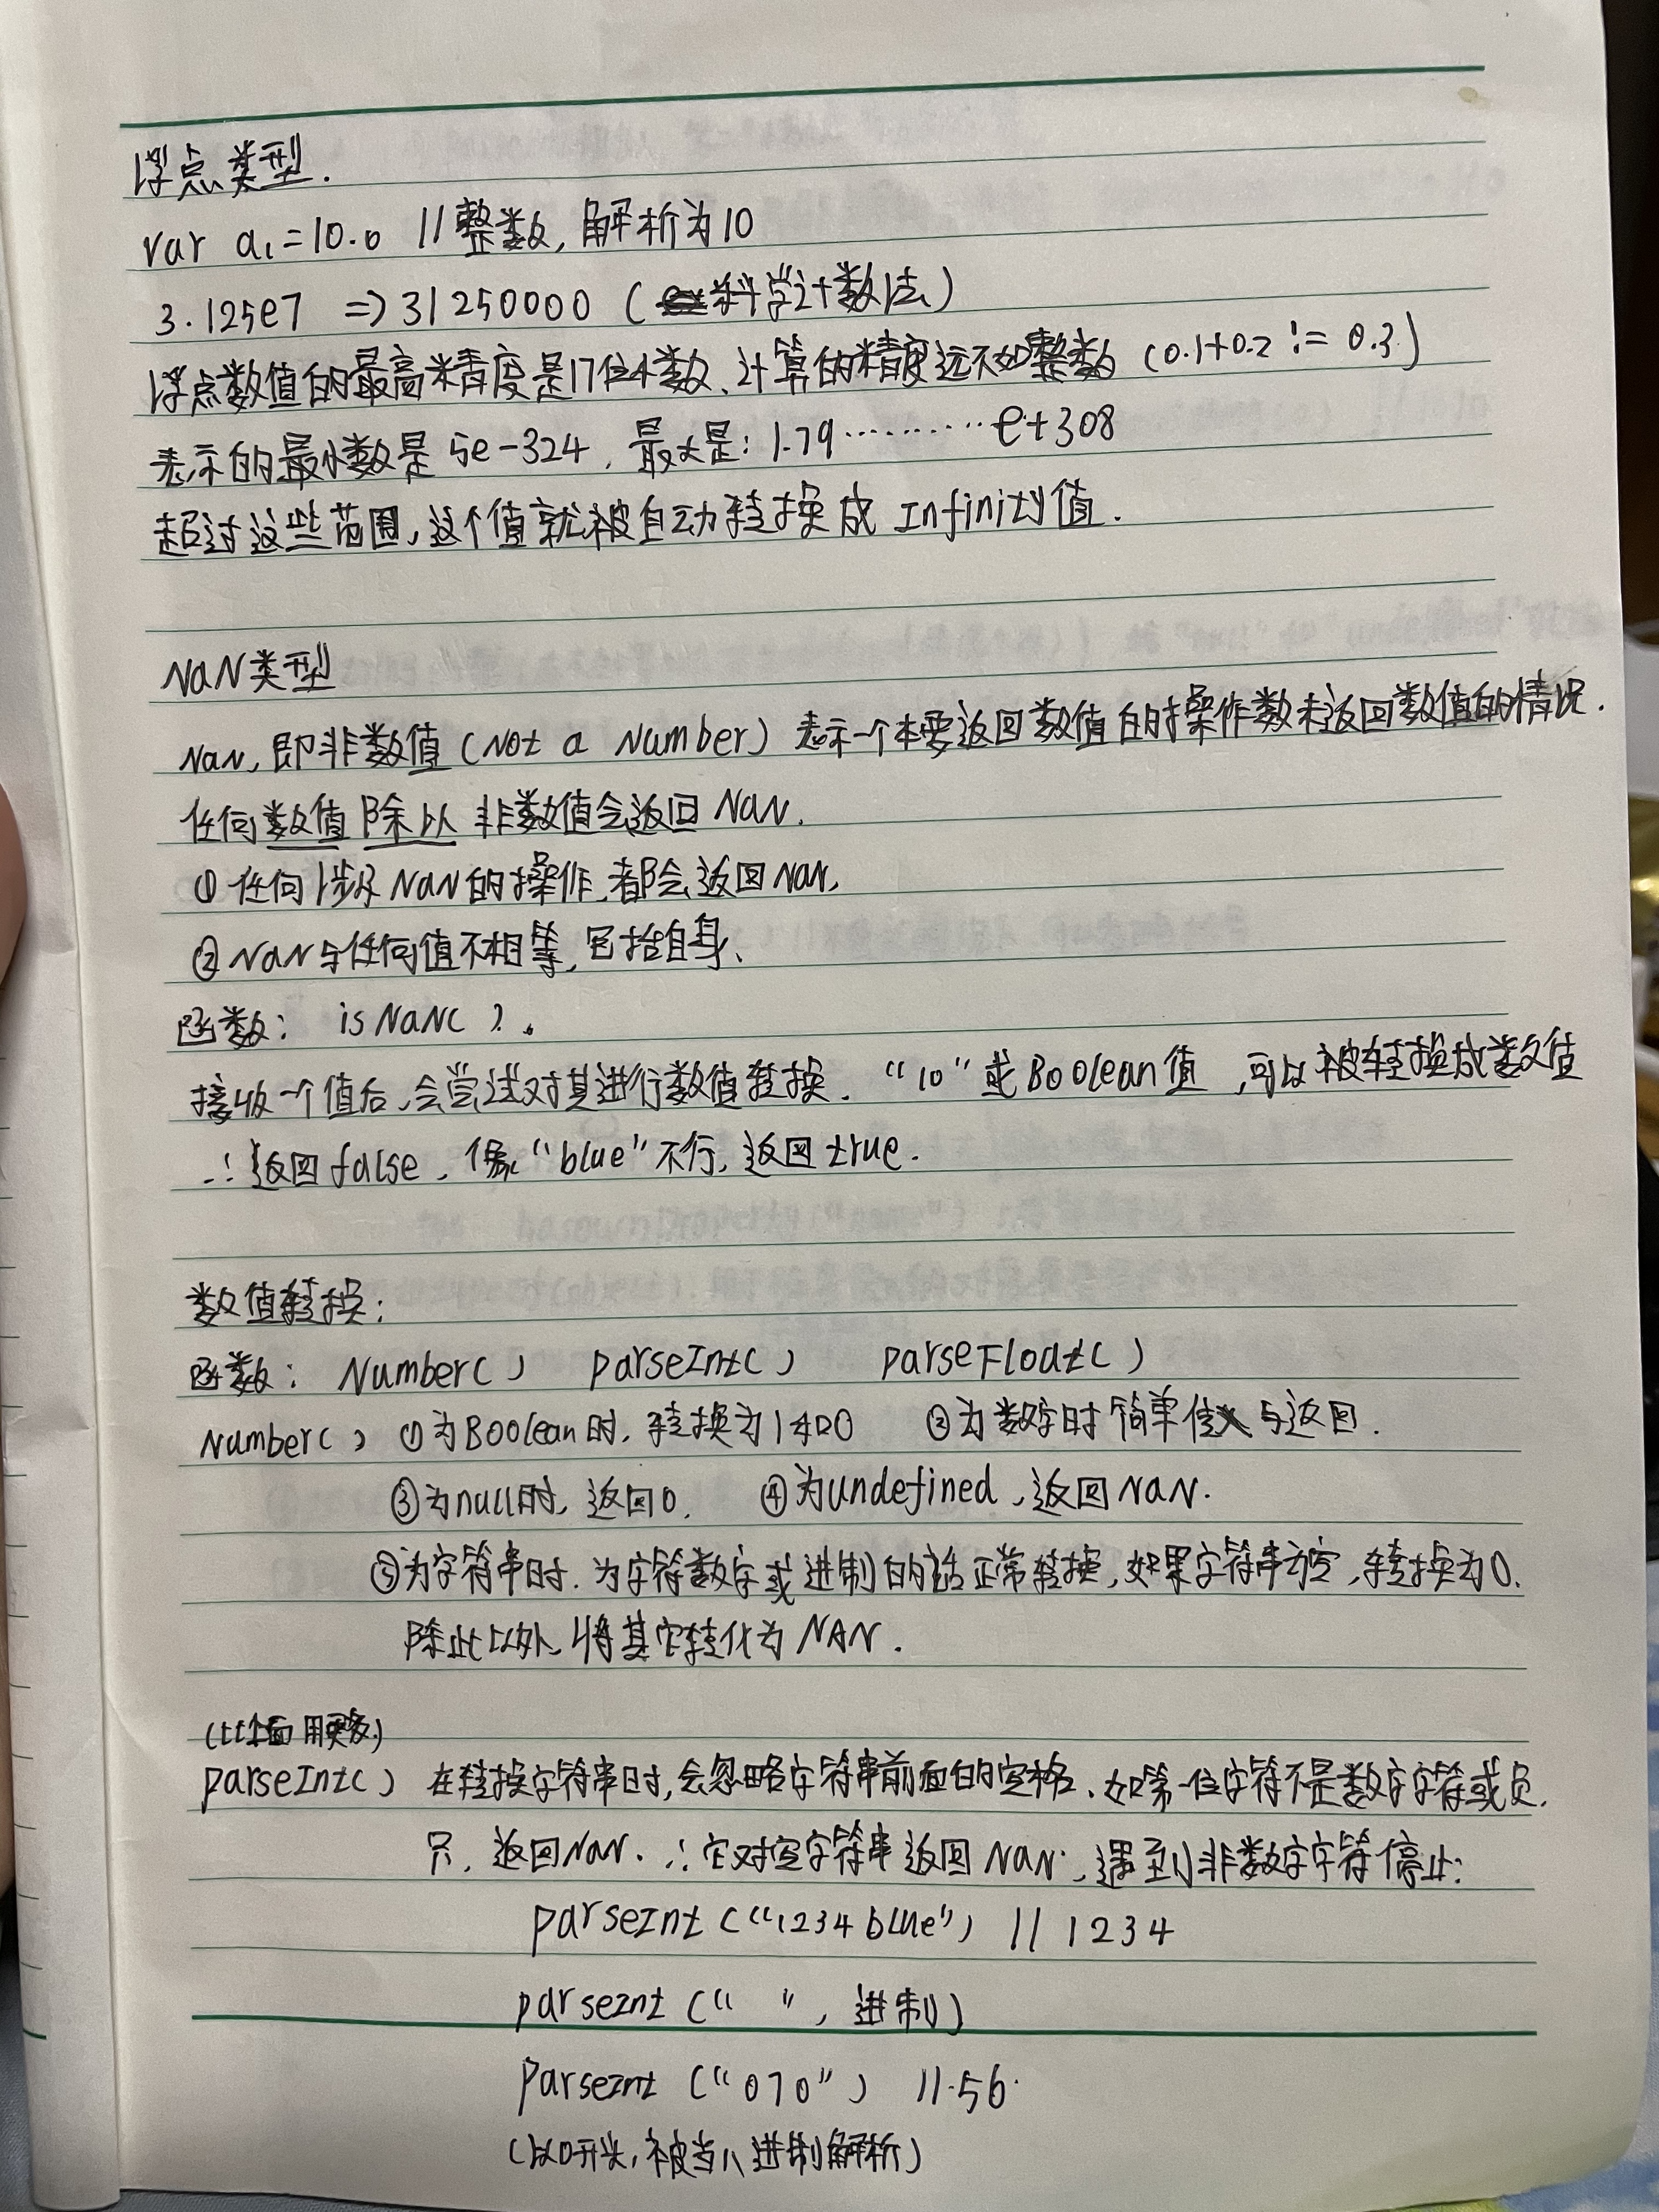 浮点类型.
var a1=10.0 //整数,解析为10
3.125e7 => 31250000 (科学计数法)
浮点数值的最高精度是17位小数、计算的精度远不如整数 (0.1+0.2 != 0.3)
表示的最小数是 5e-324, 最大是: 1.79··········e+308
超过这些范围,这个值就被自动转换成 Infinity值.
NaN类型
NaN,即非数值(Not a Number) 表示一个本要返回数值的操作数未返回数值的情况.
任何数值除以非数值会返回NaN.
①任何涉及NaN的操作,都会返回NaN,
②NaN与任何值不相等,包括自身、
函数: isNaN( ).
接收一个值后,会尝试对其进行数值转换. "10"或Boolean值,可以被转换成数值
∴返回false, 像"blue"不行,返回true.
数值转换:
函数: Number( ) parseInt( ) parseFloat( )
Number( ) ①为Boolean时,转换为1和0 ②为数字时简单传入与返回.
③为null时,返回0. ④为undefined,返回NaN.
⑤为字符串时.为字符数字或进制的话正常转换,如果字符串为空,转换为0.
除此以外,将其它转化为NAN.
(比上面用更多)
parseInt( ) 在转换字符串时,会忽略字符串前面的空格、如第一位字符不是数字字符或负.
只,返回NaN. ∴它对空字符串返回NaN,遇到非数字字符停止:
parseInt ("1234blue") // 1234
parseInt (" ", 进制)
parseInt ("070") //56
(以0开头,被当八进制解析)